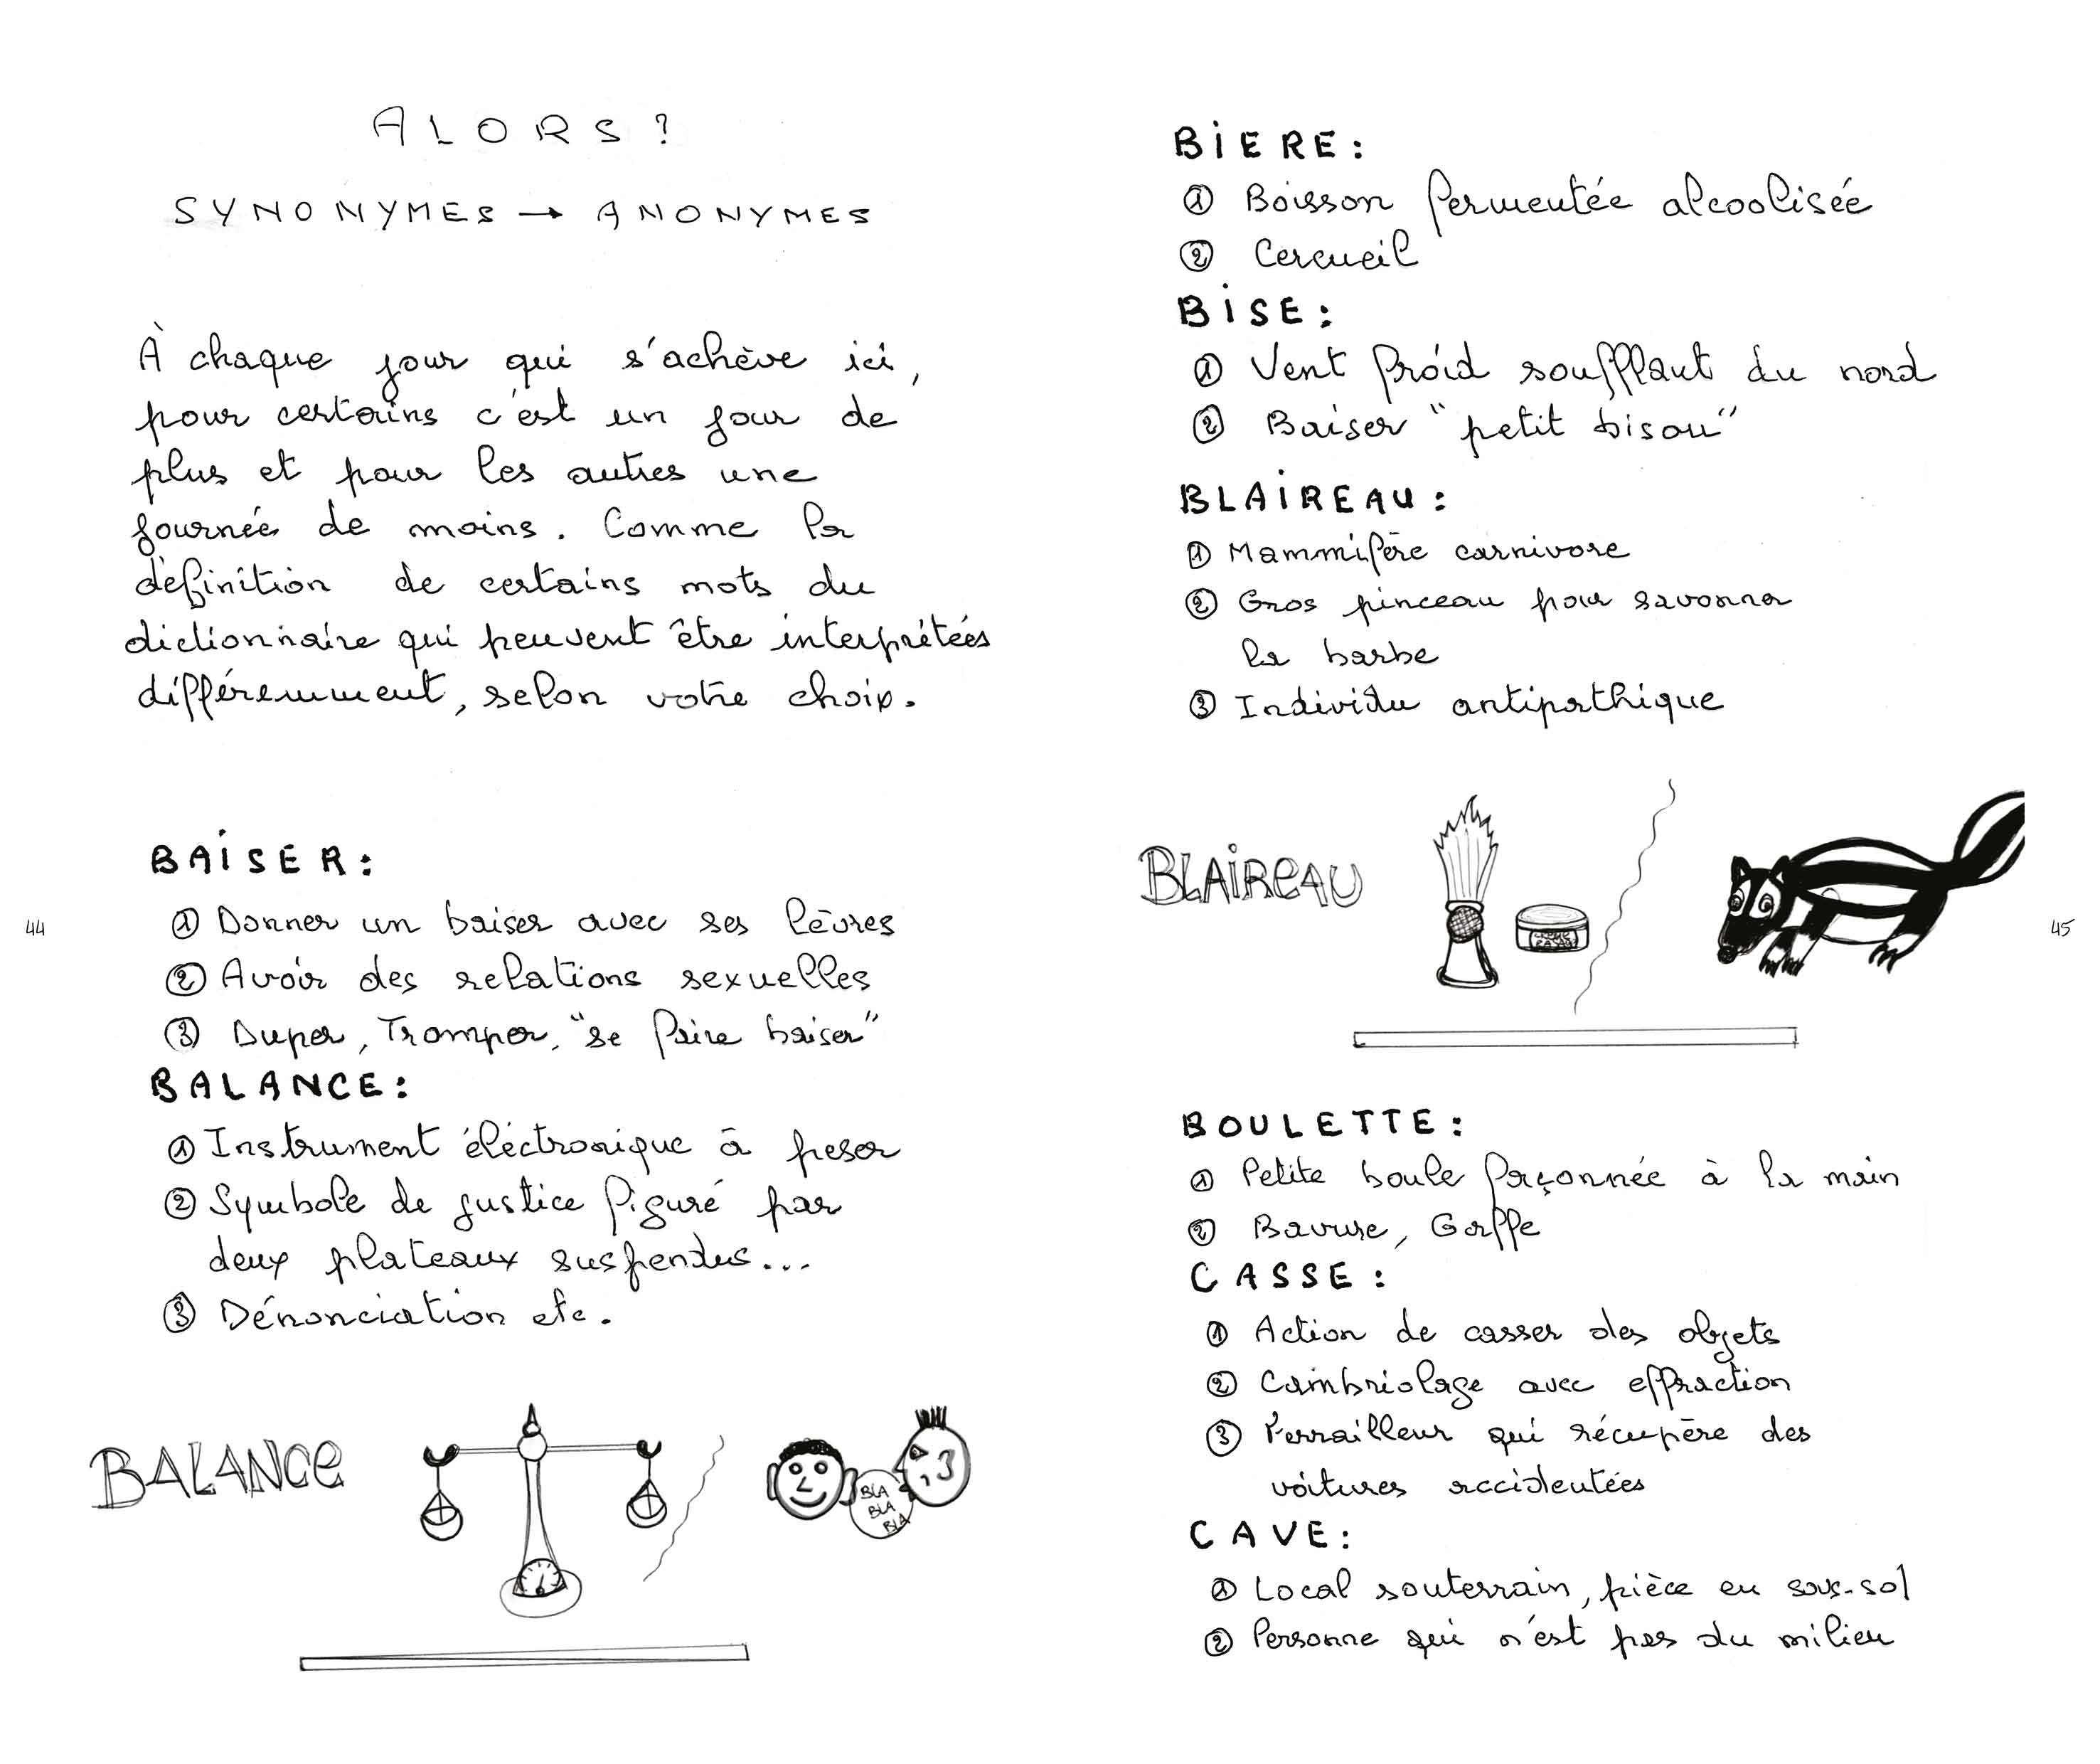 ALORS ?
SYNONYMES → ANONYMES
À chaque jour qui s'achève ici,
pour certains c'est un jour de
plus et pour les autres une
journée de moins. Comme la
définition de certains mots du
dictionnaire qui peuvent être interprétées
différemment, selon votre choix.
BAISER :
① Donner un baiser avec ses lèvres
② Avoir des relations sexuelles
③ Duper, Tromper, "se faire baiser"
BALANCE :
① Instrument éléctronique à peser
② Symbole de justice figuré par
deux plateaux suspendus...
③ Dénonciation etc.
BALANCE
BLA
BLA
BLA
44
BIERE :
① Boisson fermentée alcoolisée
② Cercueil
BISE :
① Vent froid soufflant du nord
② Baiser "petit bisou"
BLAIREAU :
① Mammifère carnivore
② Gros pinceau pour savonner
la barbe
③ Individu antipathique
BLAIREAU
45
BOULETTE :
① Petite boule façonnée à la main
② Bavure, Gaffe
CASSE :
① Action de casser des objets
② Cambriolage avec effraction
③ Ferrailleur qui récupère des
voitures accidentées
CAVE :
① Local souterrain, pièce en sous-sol
② Personne qui n'est pas du milieu